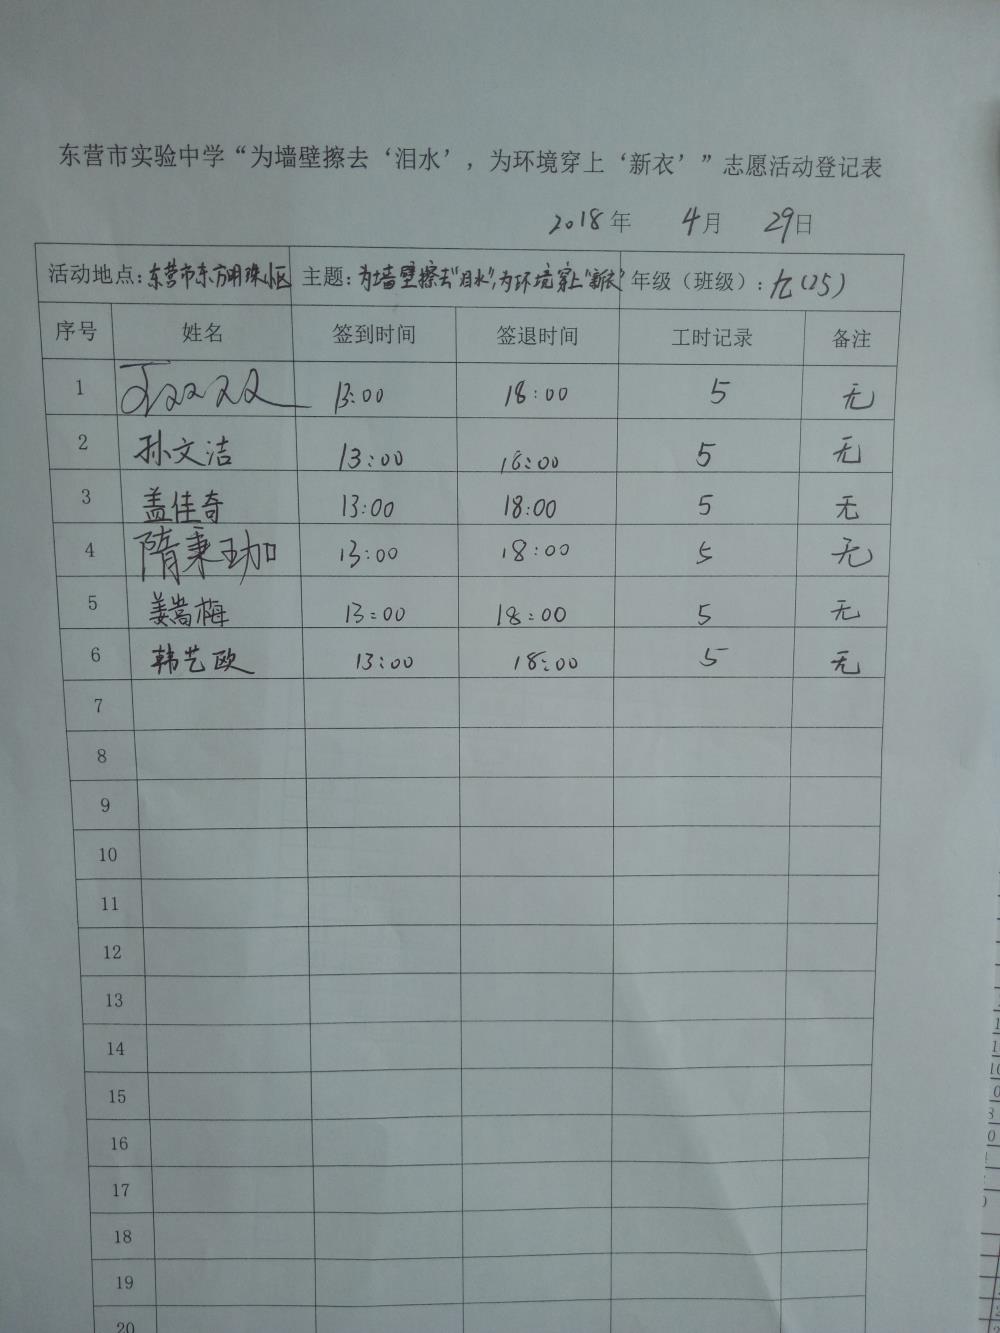 东营市实验中学“为墙壁擦去‘泪水’，为环境穿上‘新衣’”志愿活动登记表
2018年 4月 29日
活动地点：东营市东方明珠小区 主题：为墙壁擦去“泪水”，为环境穿上“新衣” 年级（班级）：九(25)
序号 姓名 签到时间 签退时间 工时记录 备注
1 13:00 18:00 5 无
2 孙文洁 13:00 18:00 5 无
3 盖佳奇 13:00 18:00 5 无
4 隋秉珈 13:00 18:00 5 无
5 姜嵩梅 13:00 18:00 5 无
6 韩艺欧 13:00 18:00 5 无
7
8
9
10
11
12
13
14
15
16
17
18
19
20